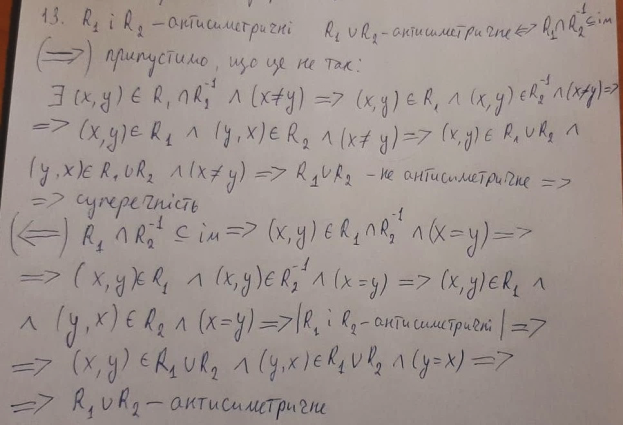 13. R₁ і R₂ - антисиметричні R₁ ∪ R₂ - антисиметричне <=> R₁ ∩ R₂⁻¹ ⊆ iм
(=>) припустимо, що це не так:
∃ (x, y) ∈ R₁ ∩ R₂⁻¹ ∧ (x≠y) => (x, y) ∈ R₁ ∧ (x, y) ∈ R₂⁻¹ ∧ (x≠y) =>
=> (x, y) ∈ R₁ ∧ (y, x) ∈ R₂ ∧ (x≠y) => (x, y) ∈ R₁ ∪ R₂ ∧
(y, x) ∈ R₁ ∪ R₂ ∧ (x≠y) => R₁ ∪ R₂ - не антисиметричне =>
=> суперечність
(<=) R₁ ∩ R₂⁻¹ ⊆ iм => (x, y) ∈ R₁ ∩ R₂⁻¹ ∧ (x=y) =>
=> (x, y) ∈ R₁ ∧ (x, y) ∈ R₂⁻¹ ∧ (x=y) => (x, y) ∈ R₁ ∧
∧ (y, x) ∈ R₂ ∧ (x=y) => | R₁ і R₂ - антисиметричні | =>
=> (x, y) ∈ R₁ ∪ R₂ ∧ (y, x) ∈ R₁ ∪ R₂ ∧ (y=x) =>
=> R₁ ∪ R₂ - антисиметричне